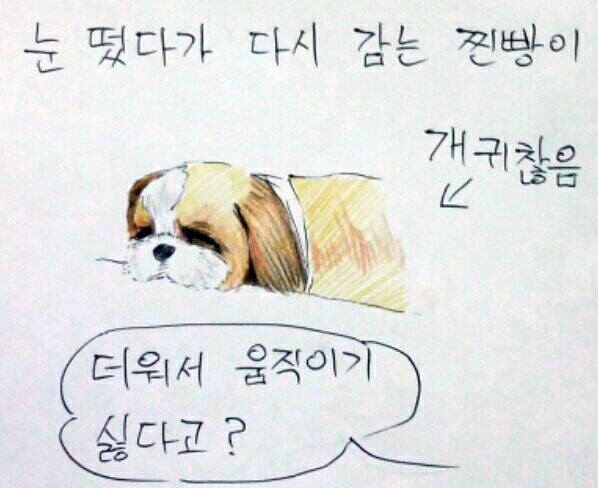 눈 떴다가 다시 감는 찐빵이
개귀찮음
더워서 움직이기
싫다고?